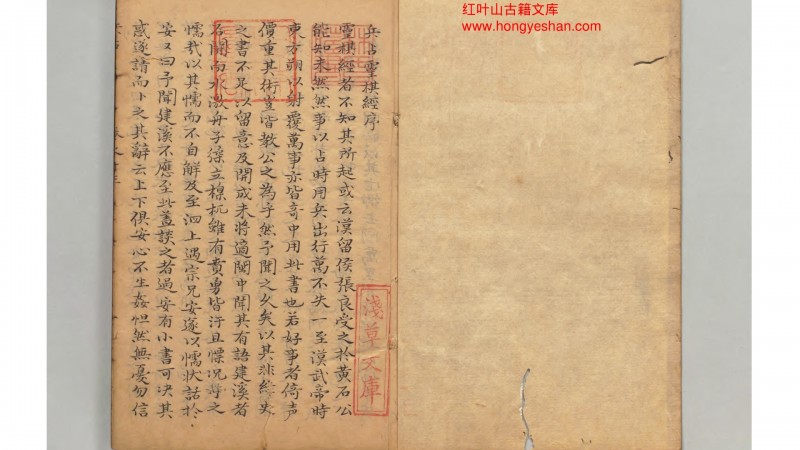 红叶山古籍文库
www.hongyeshan.com
兵占靈棋經序
靈棋經者不知其所起或云漢留侯張良受之於黃石公
能知未然然事以占時用兵出行萬不失一至漢武帝時
東方朔以射覆萬事亦皆奇中用此書也若好事者倚声
價重其術豈皆教公之為乎然予聞之久矣以其非經史
之書不足以留意及開成末將適閩中聞其有語建溪者
名聞而水激舟子徭立榜机雖有賁勇皆汗且慄况
懦哉以其懦而不自解及至泗上遇宗兄安遂以懦狀詰於
安又曰予聞建溪不應至此蓋談之者過安有小書可决其
惑遂請而卜之其辭云上下俱安心不生姦怛然無憂勿信
淺草文庫